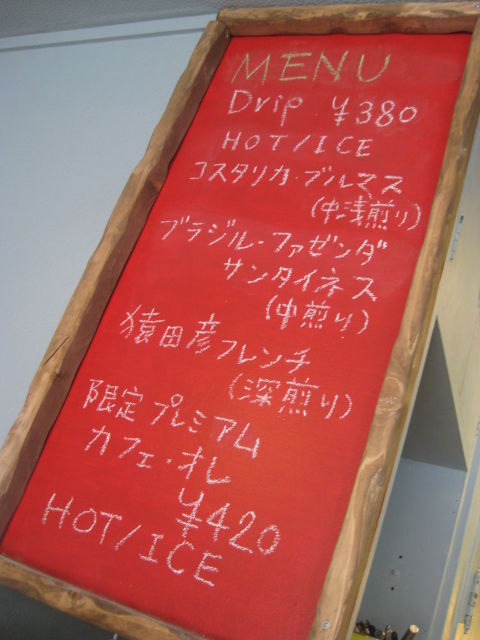 MENU
Drip ¥380
HOT/ICE
コスタリカ・ブルマス
(中浅煎り)
ブラジル・ファゼンダ
サンタイネス
(中煎り)
猿田彦フレンチ
(深煎り)
限定プレミアム
カフェ・オレ
¥420
HOT/ICE